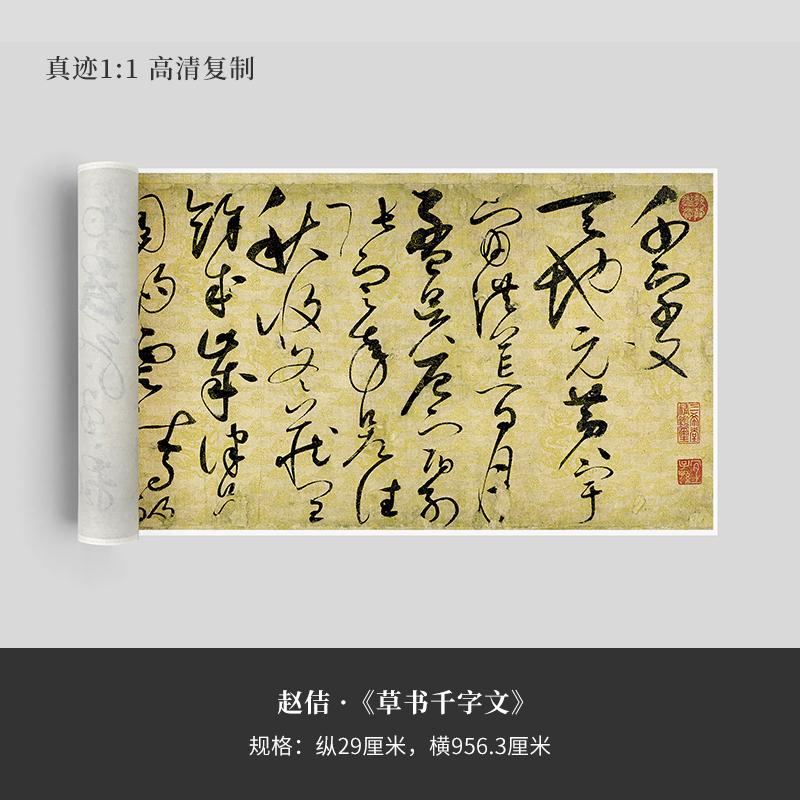 真迹1:1 高清复制
千字文
天地元黃宇
宙洪荒日月
盈昃辰宿列
張寒來暑往
秋收冬藏閏
餘成歲律呂
雲
赵佶·《草书千字文》
规格：纵29厘米，横956.3厘米